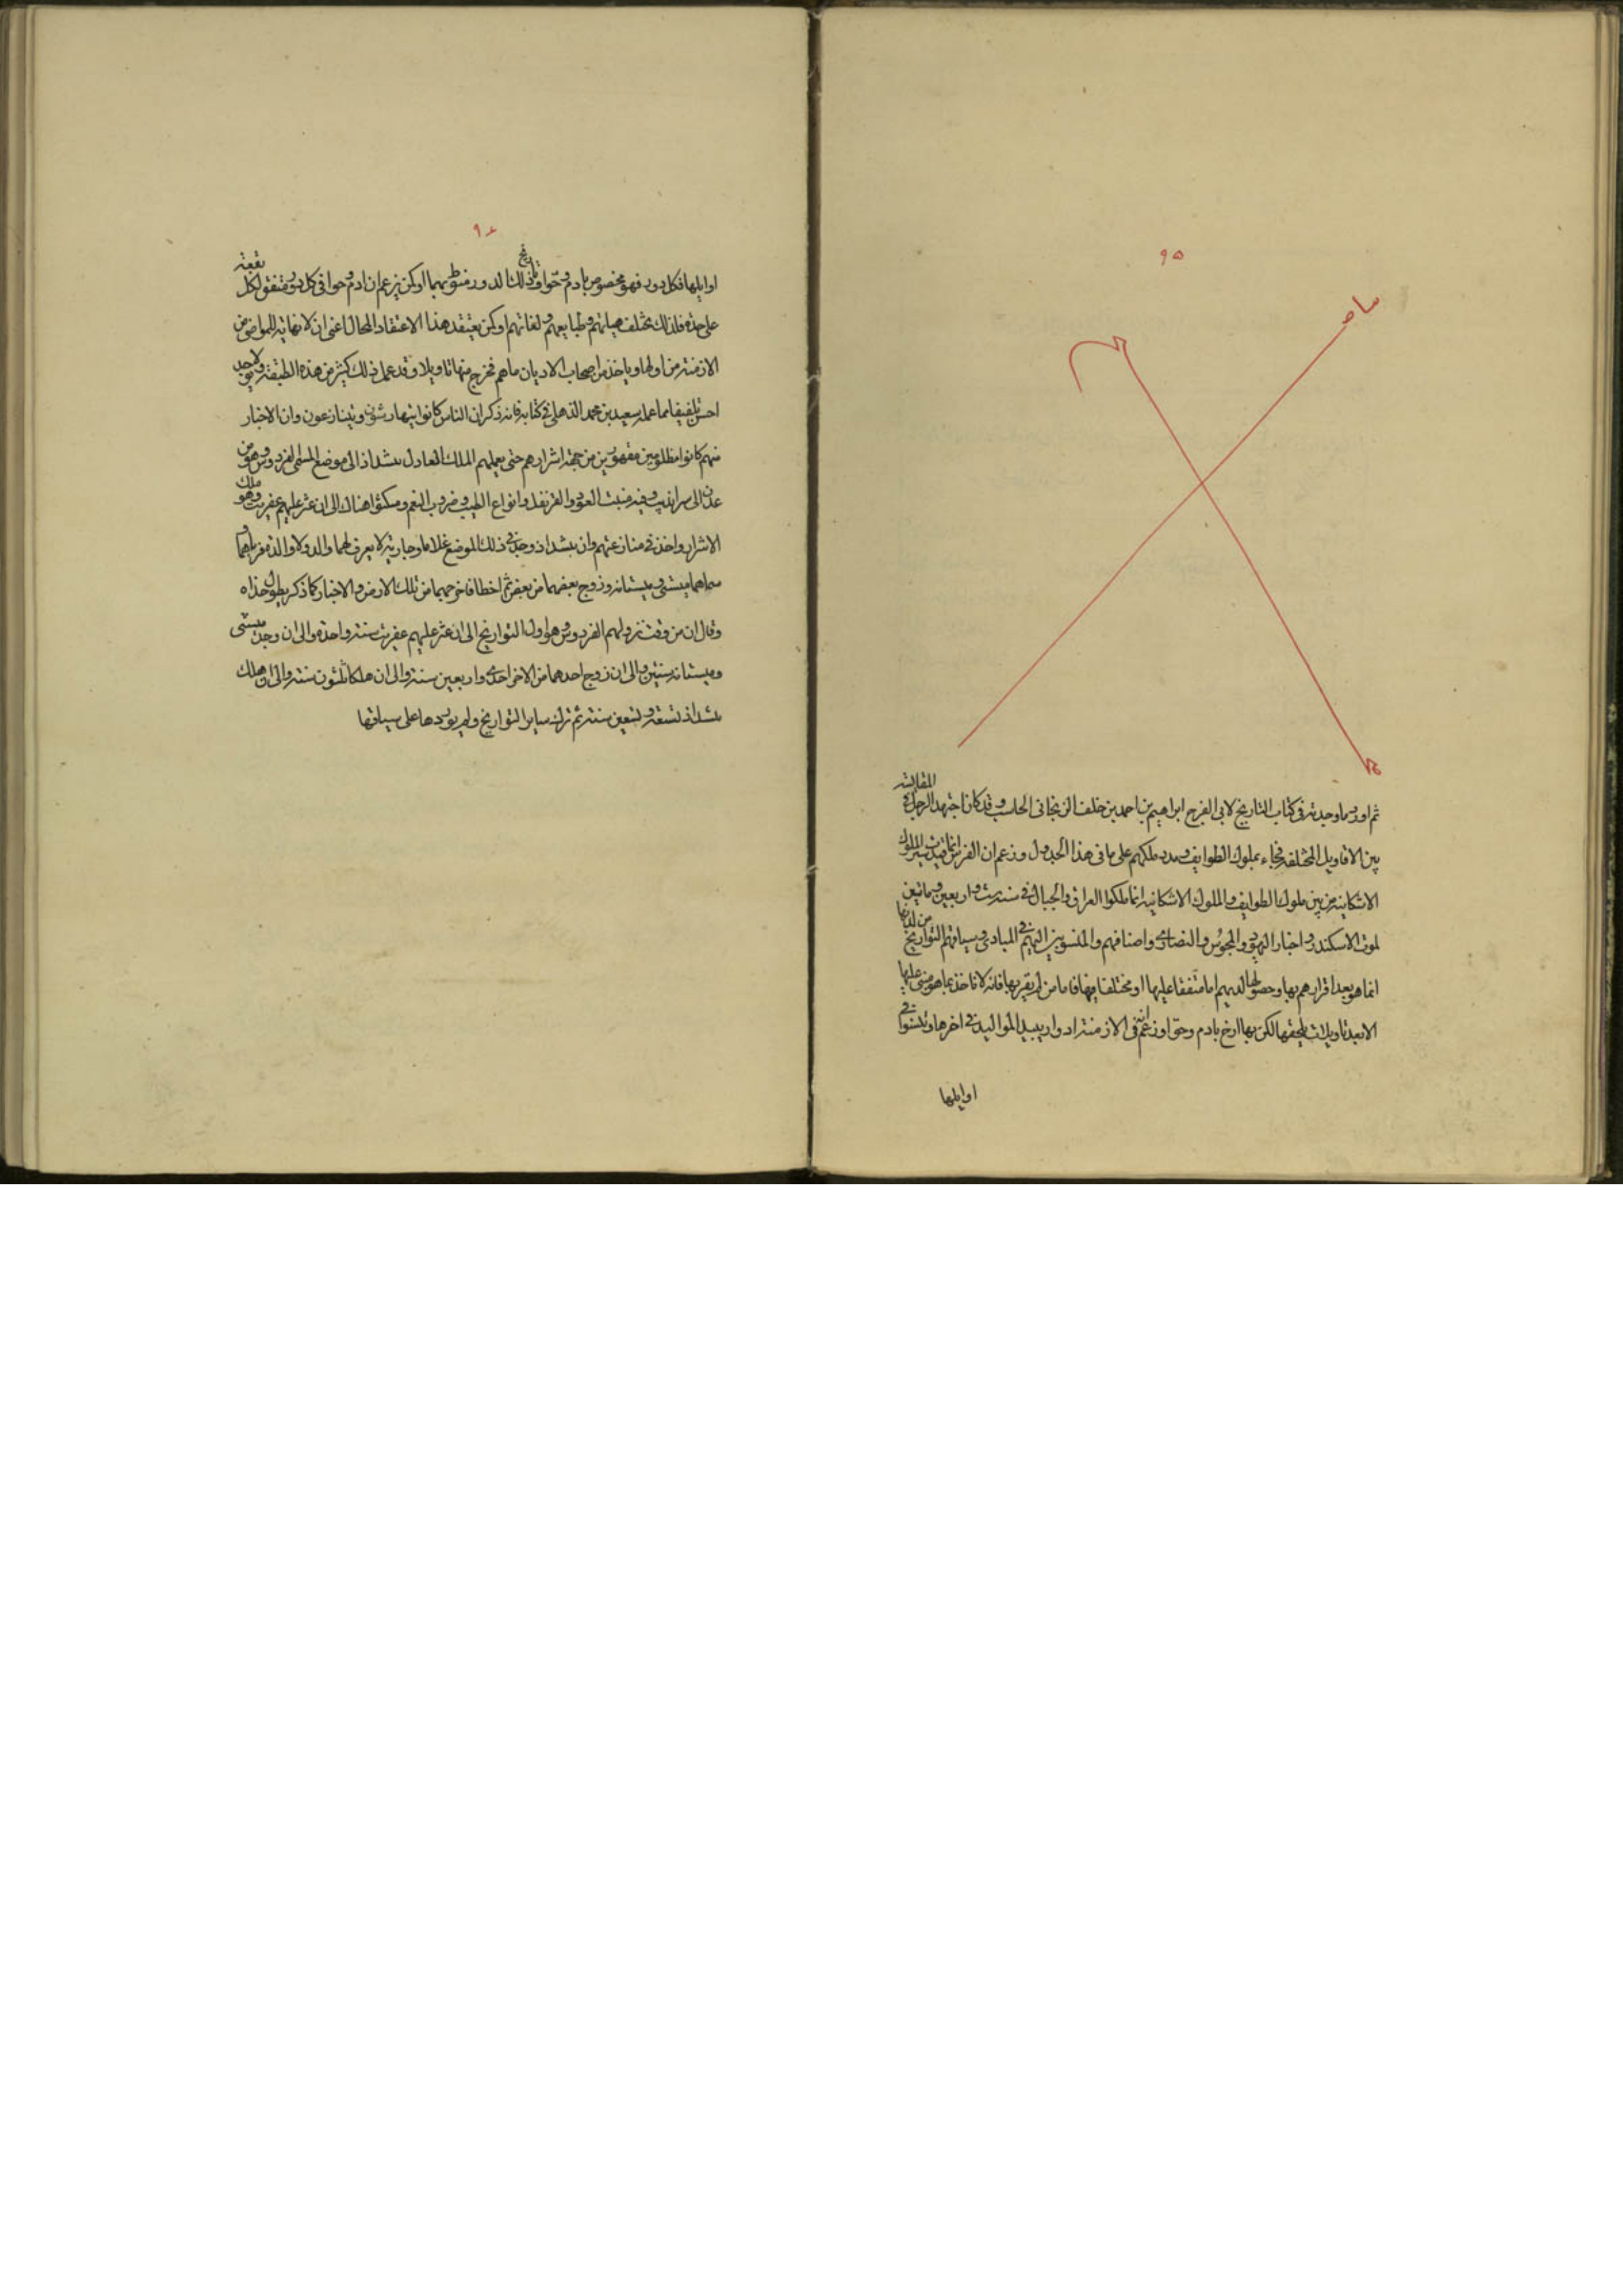 ٩٥
بياض
ثم اورد ما وجدته في كتاب التاريخ لابى الفرج ابراهيم بن احمد بن خلف الزنجانى الحاسب وقد كان اجتهد الرجل في المقايسة
بين الاقاويل المختلفة فجاء بملوك الطوايف ومدد ملكهم على ما فى هذا الجدول وزعم ان الفرس انما قيدت سير الملوك
الاشكانية من بين ملوك الطوايف والملوك الاشكانيه انما ملكوا العراق والجبال في سنة ست واربعين ومايتين
لموت الاسكندر واخبار اليهود والمجوس والنصارى واصنافهم والمنسوبين اليهم في المبادى وسياقتهم التواريخ من لدنها
انما هو بعد اقرارهم بها وحصولها لديهم اما متفقا عليها او مختلفا فيها فاما من لم يقر بها فانه لا ياخذ بما هو مبنى عليها
الا بعد تاويلات يلحقها لكن بها ارخ بادم وحوا وزعم انه فى الازمنة ادوار يبيد المواليد في اخرها وتنشوا في
اوايلها
٩٦
اوايلها فكل دور فهو مخصوص بادم وحوا وتاريخ ذلك الدور منوط بهما او كمن يزعم ان ادم وحوا فى كل دور متفق لكل بقعة
على حدة فلذلك تختلف هياتهم وطبايعهم ولغاتهم او كمن يعتقد هذا الاعتقاد المحال اعنى ان لا نهاية للمواضى من
الازمنة من اولها وياخذ من اصحاب الاديان ما هم فخرج منها تاويلا وقد عمل ذلك كثير من هذه الطبقة ولا يوجد
احسن تلفيقا مما عمله سعيد بن محمد الذهلى في كتابه فانه ذكر ان الناس كانوا يتهارشون ويتنازعون وان الاخيار
منهم كانوا مظلومين مقهورين من جهة اشرارهم حتى بعلهم الملك العادل بيشداذ الى موضع المسمى فردوس وهو من
عدن الى سرانديب وفيه منبت العود والقرنفل وانواع الطيب وضروب النعم ومكثوا هناك الى ان عثر عليهم عفريت وهو ملك
الاشرار واخذ في منازعتهم وان بيشداذ وجد في ذلك الموضع غلاما وجارية لا يعرف لهما والد ولا والدة فرباهما و
سماهما ميشى وميشانه وزوج بعضهما من بعض ثم اخطا فاخرجهما من تلك الارض والاخبار كما ذكر يطول جدا ه
وقال ان من وقت نزولهم الفردوس وهو اول التواريخ الى ان عثر عليهم عفريت سنة واحدة والى ان وجد ميشى
وميشانه سنتين والى ان زوج احدهما من الاخر احدى واربعين سنة والى ان هلكا ثلثون سنة والى ان هلك
بيشداذ تسعة وتسعين سنة ثم ترك ساير التواريخ ولم يوردها على سياقتها